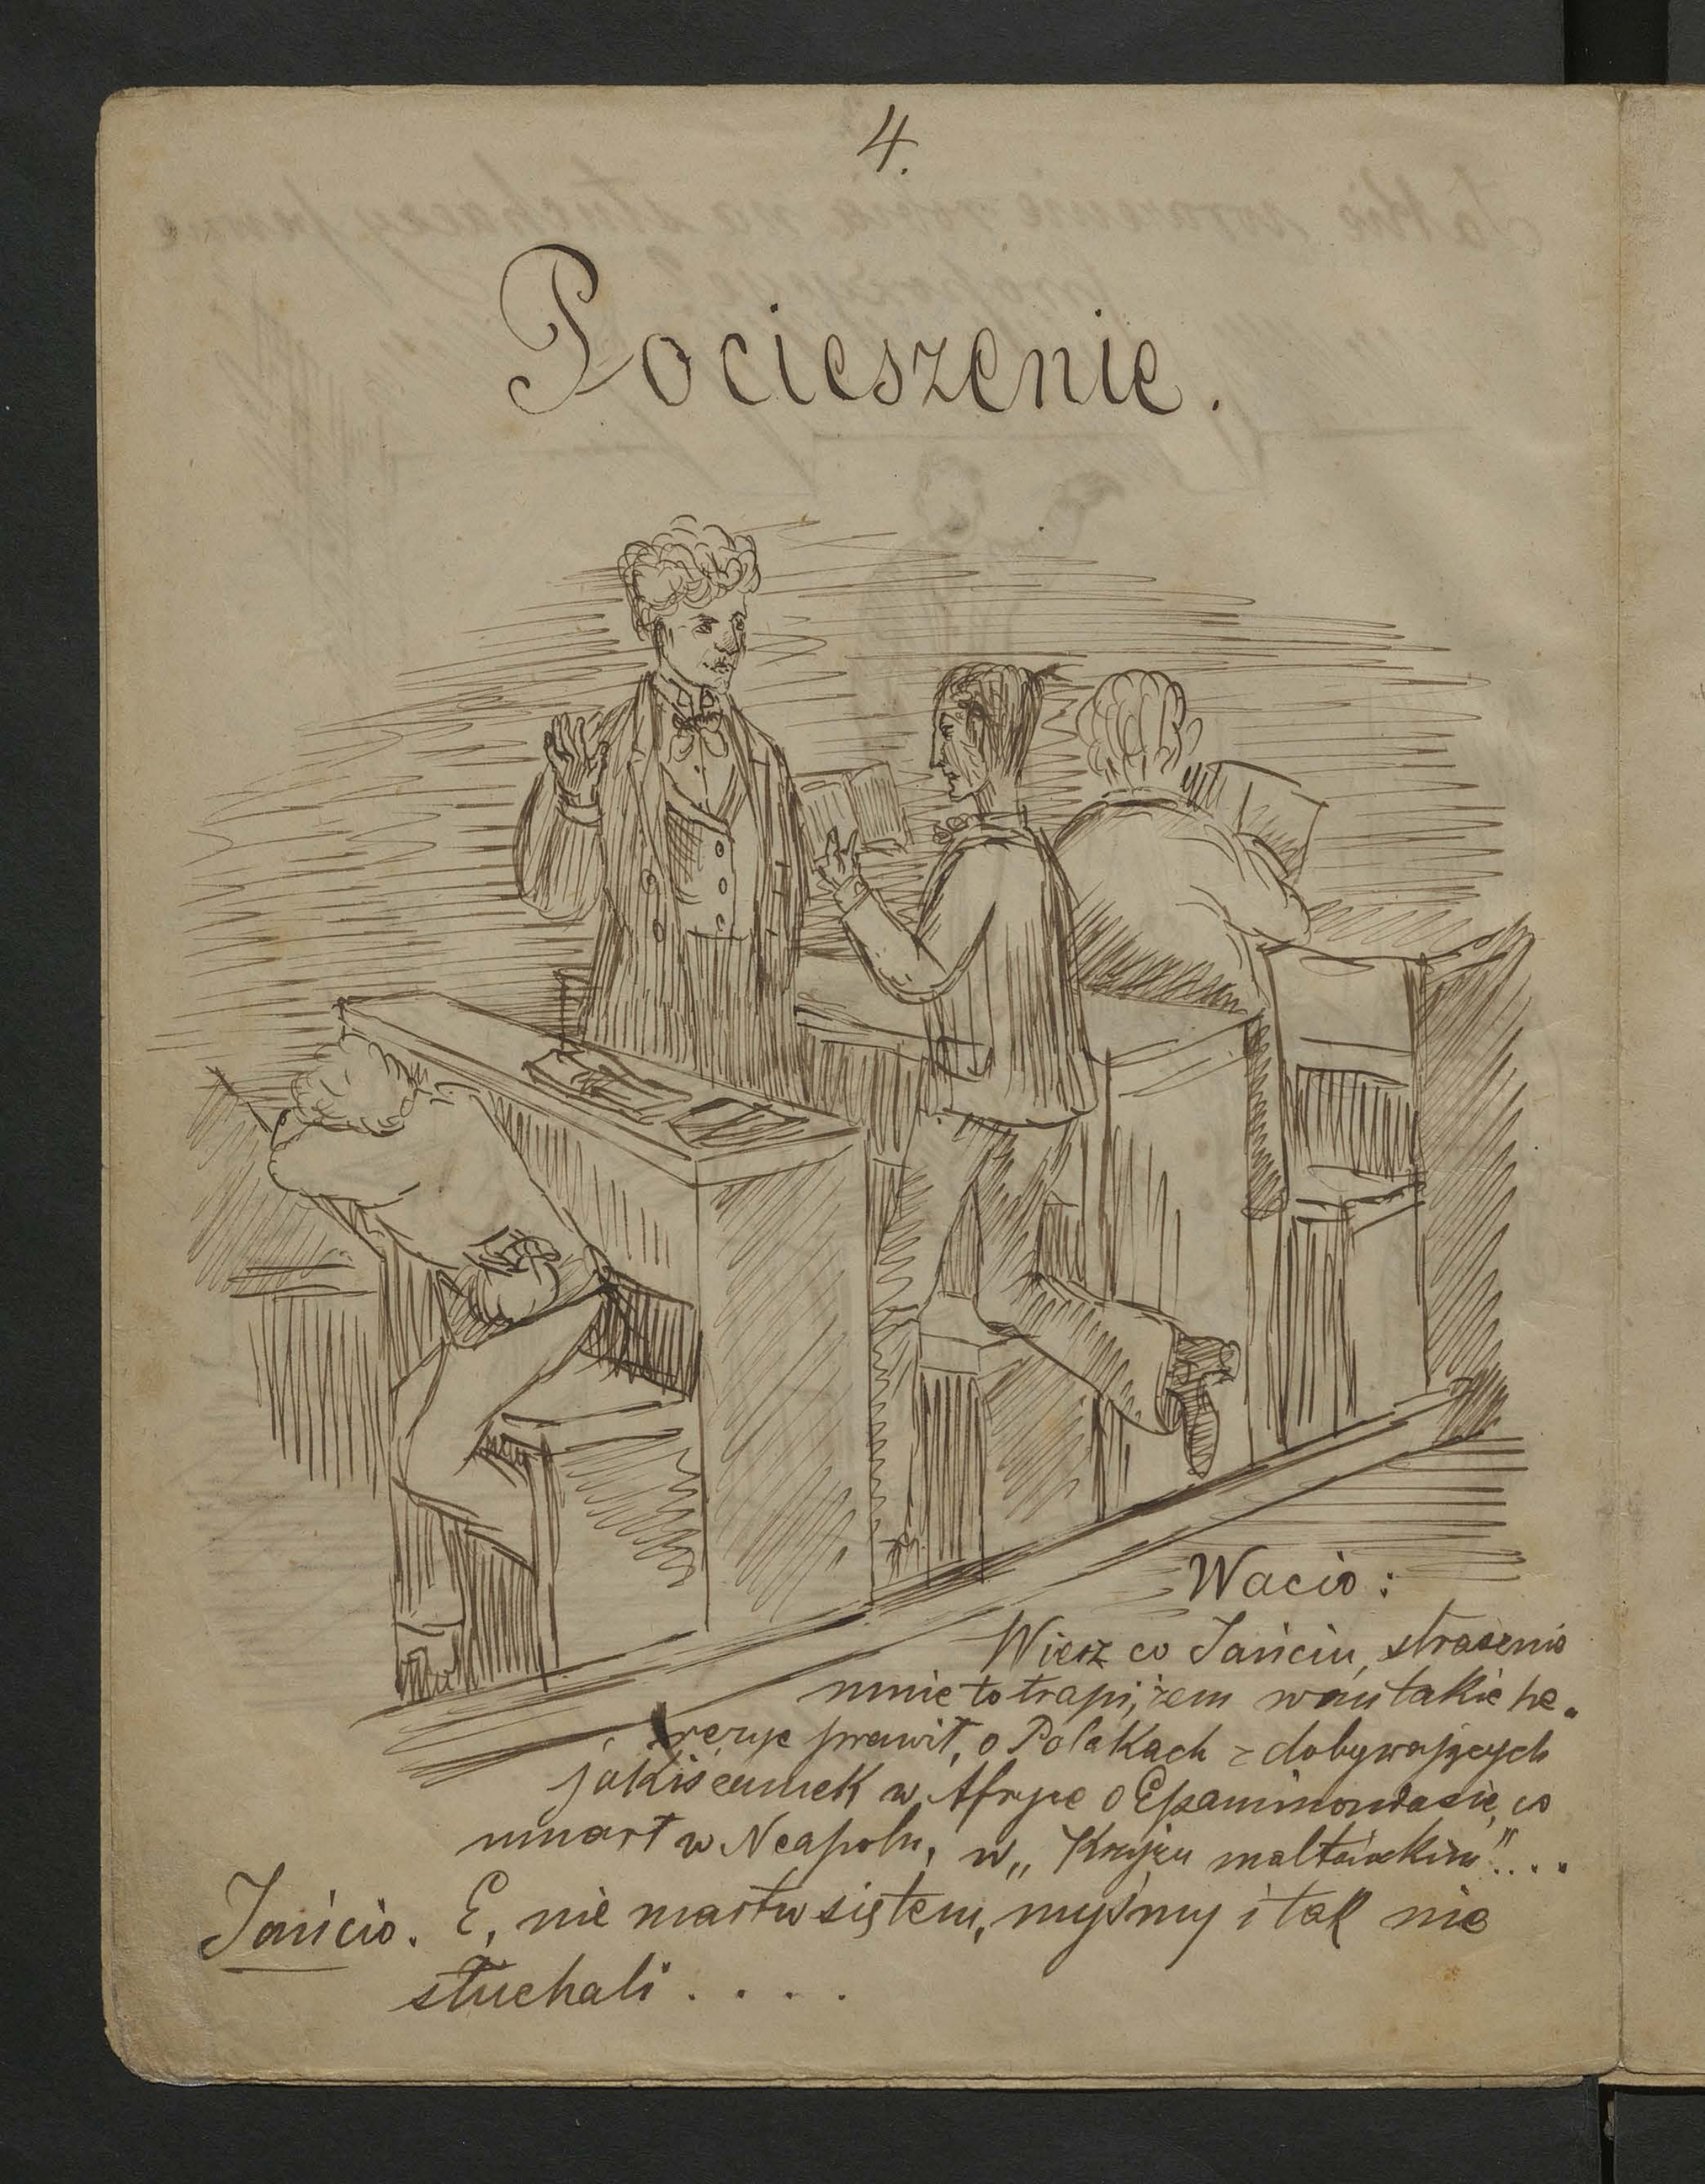 4.
Pocieszenie.
Wacio:
Wiesz co Jańciu, strasznie
mnie to trapi, żem wam takie he-
rezye prawił, o Polakach zdobywających
jakiś zamek w Afryce o Epaminondasie, co
umarł w Neapolu, w „Krzyżu maltańskim"....
Jańcio. E, nie martw się tem, myśmy i tak nie
słuchali . . . .